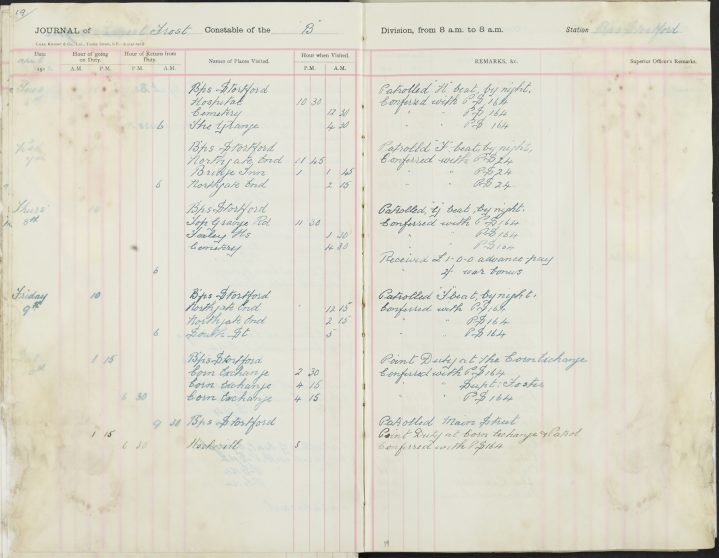 19
JOURNAL of Frost Constable of the "B" Division, from 8 a.m. to 8 a.m. Station Bps Stortford
Date Hour of going on Duty. Hour of Return from Duty. Names of Places Visited. Hour when Visited. REMARKS, &c. Superior Officer's Remarks.
191 A.M. P.M. P.M. A.M. P.M. A.M.
Bps-Stortford Patrolled "H" beat, by night,
Hospital 10 30 Conferred with P-S 164
Cemetery 12 30 " " P-S 164
6 The Grange 4 30 " " P-S 164
Bps-Stortford Patrolled "F" beat, by night,
Northgate End 11 45 Conferred with P-S 24
Bridge Inn 1 1 45 " P-S 24
6 Northgate End 2 15 " P-S 24
Thurs Bps-Stortford Patrolled "G" beat, by night.
8th Top Grange Rd 11 30 Conferred with P-S 164
1 30 " P-S 164
Cemetery 4 30 " P-S 164
Received £1-0-0 advance pay
6 " 2/- war bonus
Friday 10 Bps-Stortford Patrolled "F" beat, by night.
9th Northgate End 12 15 Conferred with P-S 164
Northgate End 2 15 " " P-S 164
6 South St 5 " " P-S 164
1 15 Bps-Stortford Point Duty at the Corn Exchange
Corn Exchange 2 30 Conferred with P-S 164
Corn Exchange 4 15 " Supt: Foster
6 30 Corn Exchange 4 15 " P-S 164
9 30 Bps-Stortford Patrolled Main Street
1 15 Point Duty at Corn Exchange & Patrol
6 30 Hockerill 5 Conferred with P-S 164